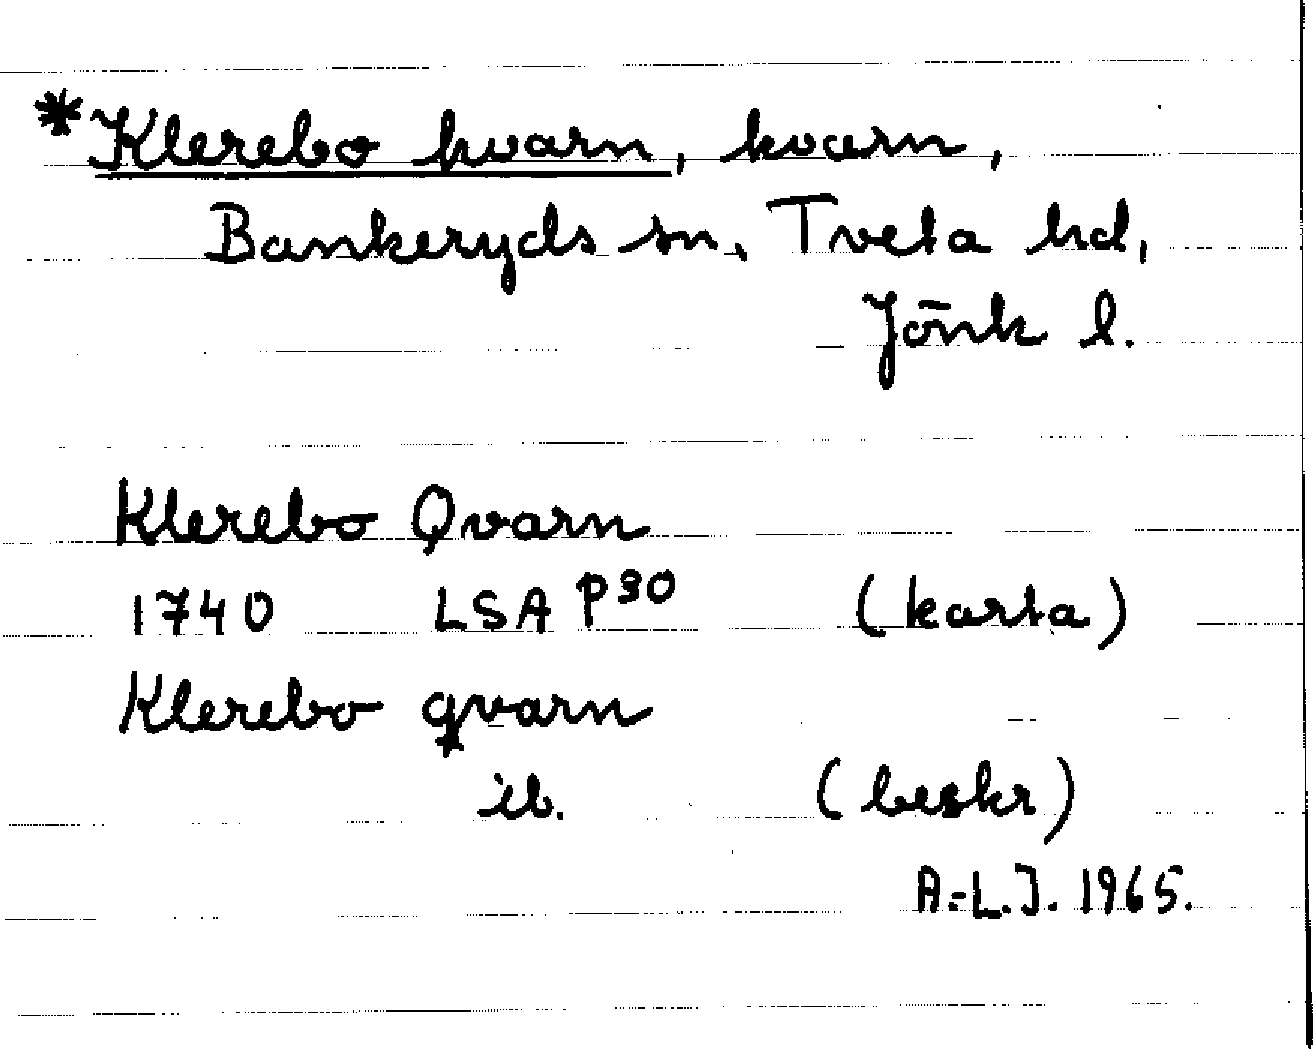 *Klerebo kvarn, kvarn,
Bankeryds sn, Tveta hd,
Jönk l.
Klerebo Qvarn
1740 LSA P30 (karta)
Klerebo qvarn
ib. (beskr)
A.-L.J. 1965.